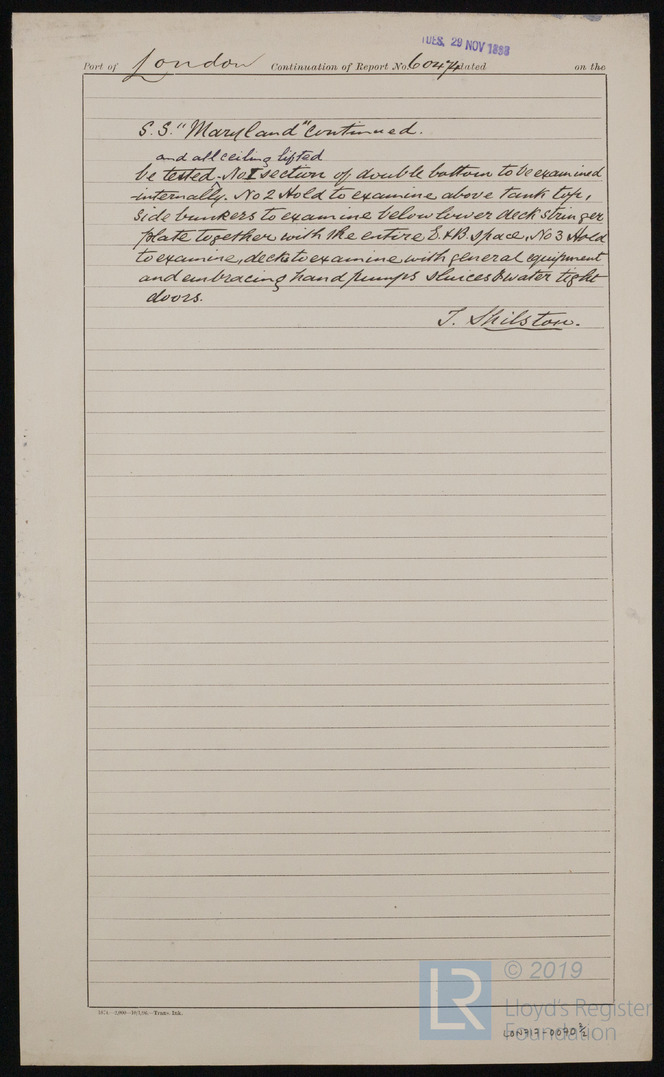 TUES. 29 NOV 1898
Port of London Continuation of Report No. 60474 dated on the
S.S. "Maryland" Continued.
and all ceiling lifted
be tested. No I section of double bottom to be examined
internally. No 2 Hold to examine above tank top,
side bunkers to examine below lower deck stringer
plate together with the entire E & B space, No 3 Hold
to examine, decks to examine with general equipment
and embracing hand pumps sluices & water tight
doors.
T. Shilston.
© 2019
LR
Lloyd's Register
Foundation
LON717-0090 2/2